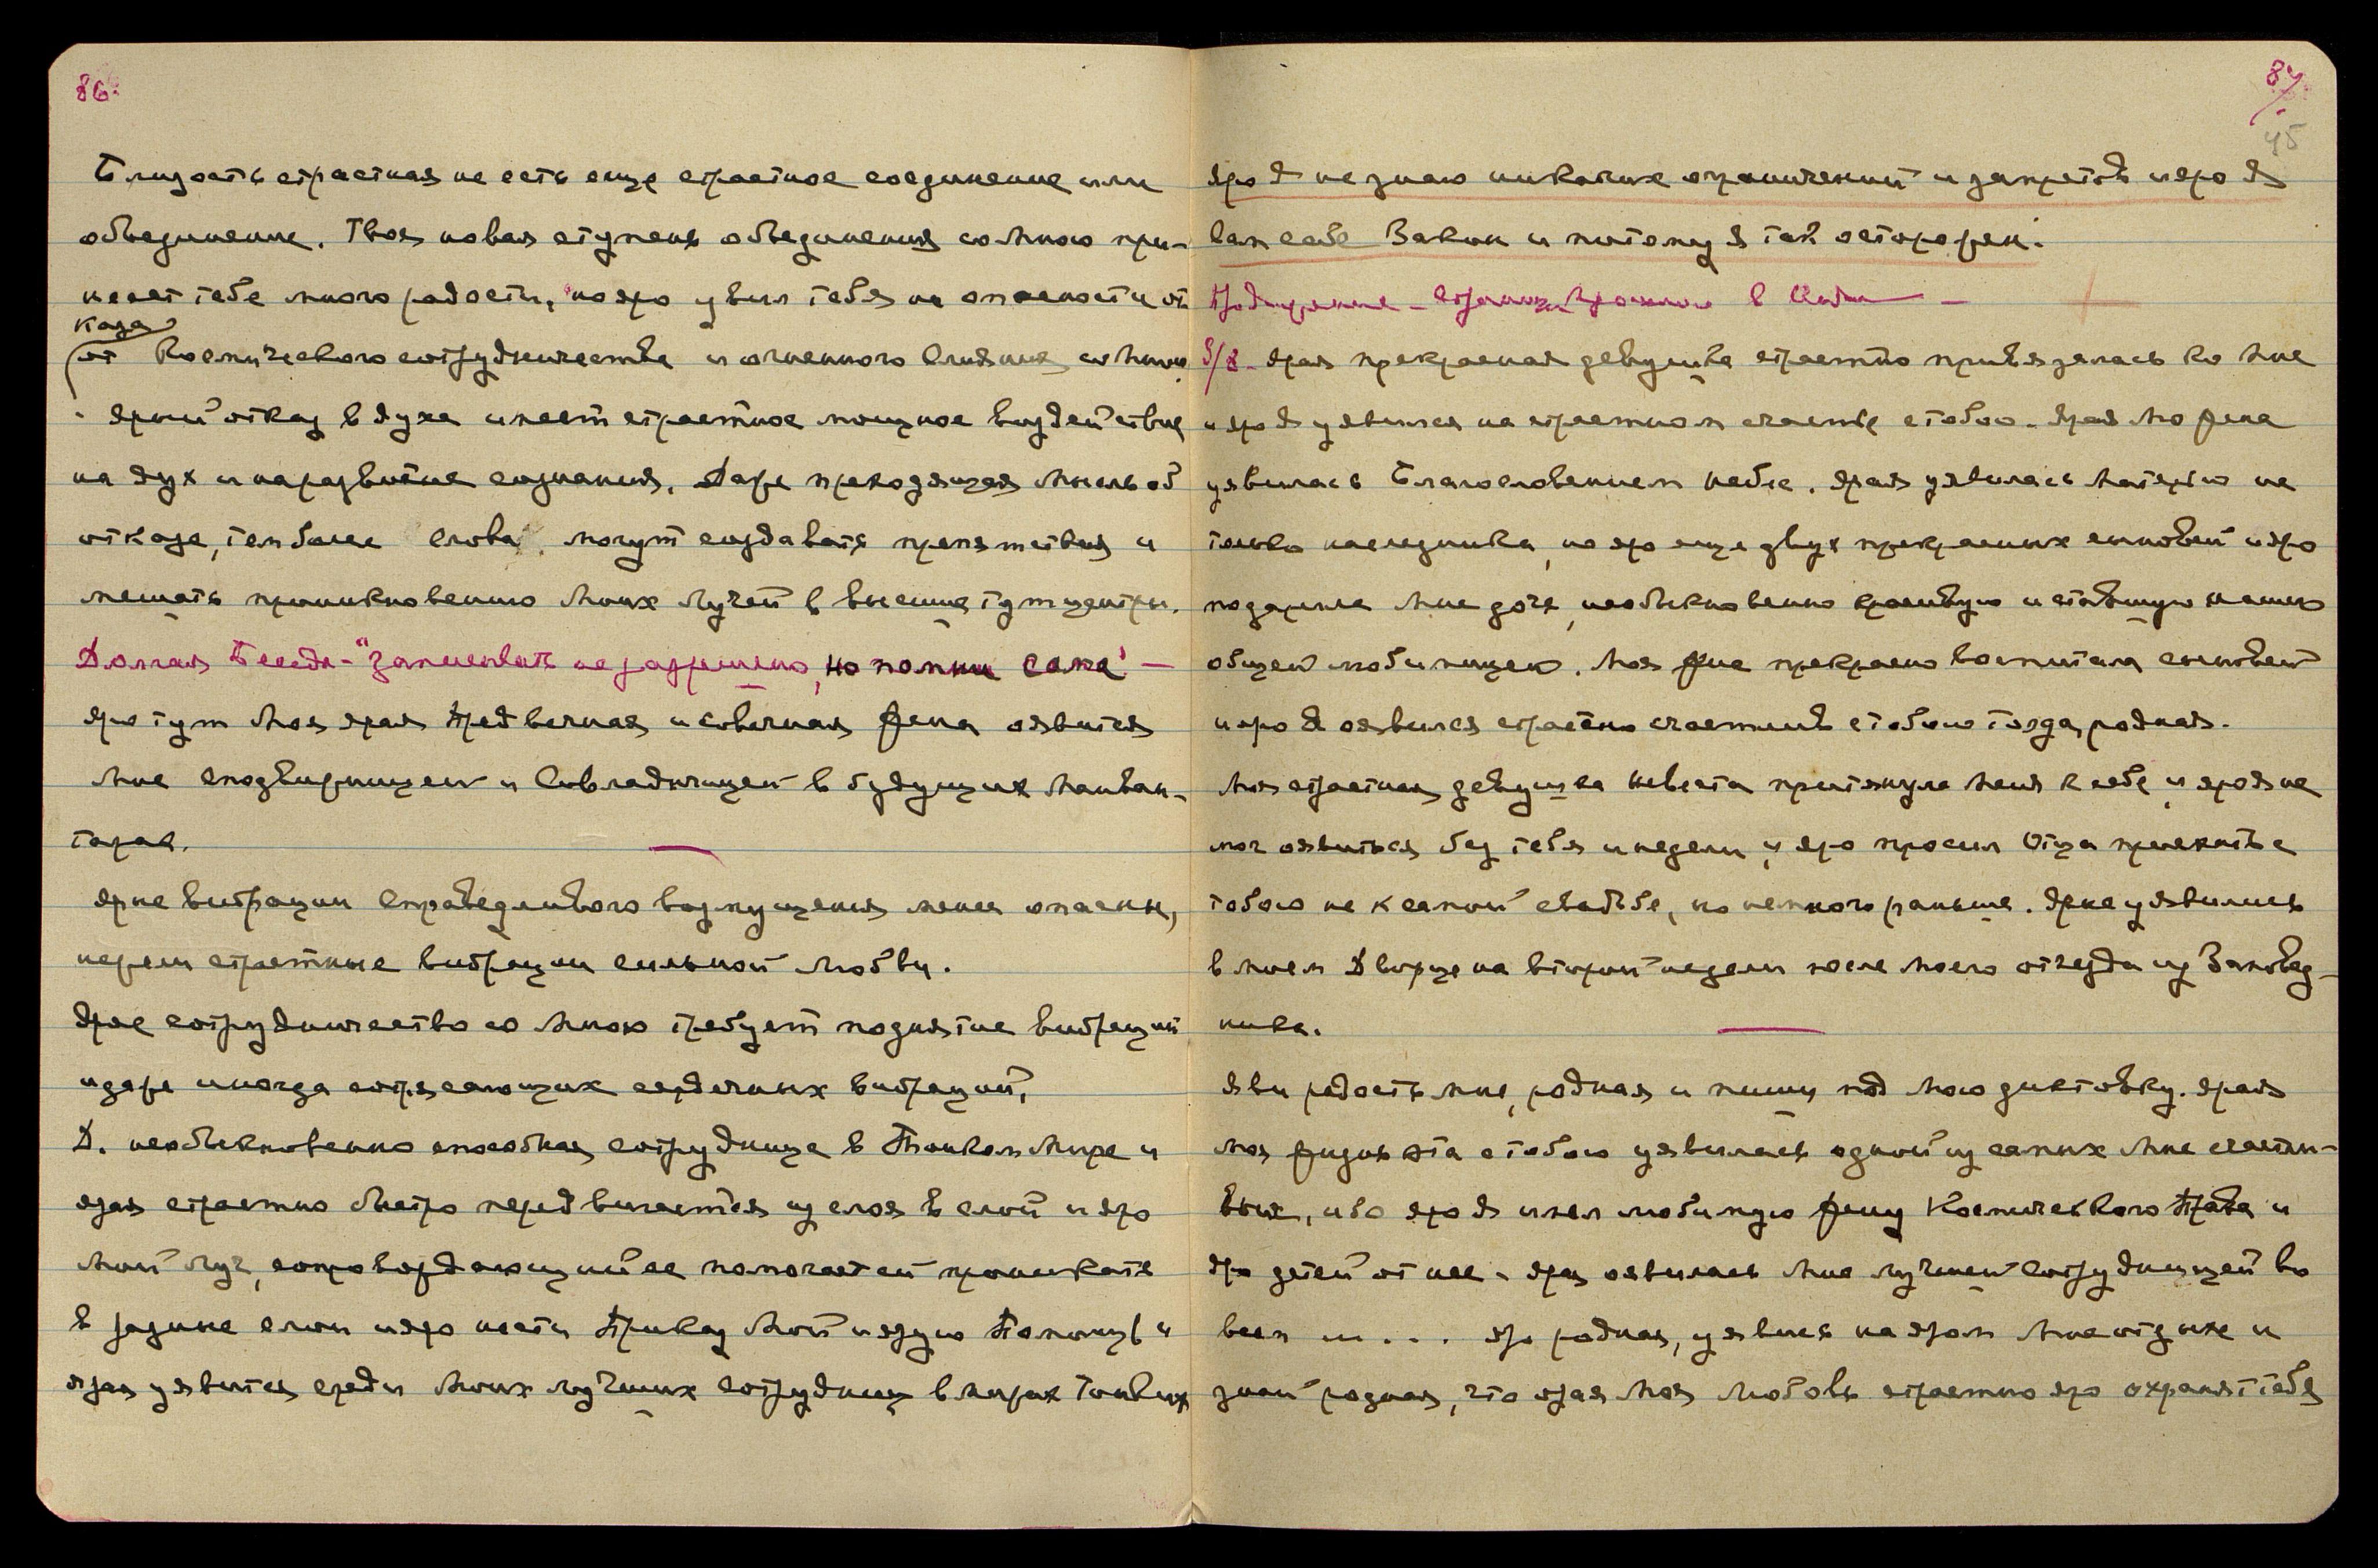 86.
Близость страстная не есть еще страстное соединение или
объединение. Твоя новая ступень объединения со Мною при-
несет тебе много радости, но яро увил тебя на опасности от
каза
от Космического сотрудничества и огненного слияния со Мною
. Ярый отказ в духе имеет страстное мощное воздействие
на дух и на развитие сознания. Даже преходящая мысль об
отказе, тем более слова, могут создавать препятствия и
мешать проникновению Моих Лучей в высшие тут центры.
Долгая Беседа - "записывать не разрешено, но помни сама" —
Яро тут Моя ярая Предвечная и Совечная жена оявится
Мне сподвижницей и Совладычицей в будущих Манван-
тарах.
Ярые вибрации справедливого возмущения менее опасны,
нежели страстные вибрации сильной Любви.
Ярое сотрудничество со Мною требует поднятие вибраций
и даже иногда сотрясающих сердечных вибраций.
Д. необыкновенно способная сотрудница в Тонком Мире и
ярая страстно быстро передвигается из слоя в слой и яро
Мой Луч, сопровождающий ее помогает ей проникать
в разные слои и яро нести Приказ Мой и ярую Помощь и
ярая уявится среди Моих лучших сотрудниц в мирах Тонких
87
45
яро Я не знаю никаких ограничений и запретов и яро Я
сам себе Закон и потому Я так осторожен.
5/8 - Ярая прекрасная девушка страстно привязалась ко Мне
и яро Я уявился на страстном счастье с тобою. Ярая Мо жена
уявилась Благословением неба. Ярая уявилась Матерью не
только наследника, но яро еще двух прекрасных сыновей и яро
подарила Мне дочь, необыкновенно красивую и ставшую нашею
общей любимицею. Моя жена прекрасно воспитала сыновей
и яро Я оявился страстно счастлив с тобою тогда, родная.
Моя страстная девушка невеста притянула Меня к себе и яро Я не
мог оявиться без тебя и недели и яро просил Отца приехать с
тобою не к самой свадьбе, но немного раньше. Ярые уявились
в Моем Дворце на второй неделе после Моего отъезда из Заповед-
ника.
Яви радость Мне, родная и пиши под Мою диктовку. Ярая
Моя жизнь эта с тобою уявилась одной из самых Мне счастли-
вых, ибо яро Я имел любимую жену Космического Права и
яро детей от нее. Ярая оявилась Мне лучшей сотрудницей во
всем и . . . яро родная, уявись на яром Мне отдыхе и
знай родная, что ярая Моя Любовь страстно яро охранит тебя